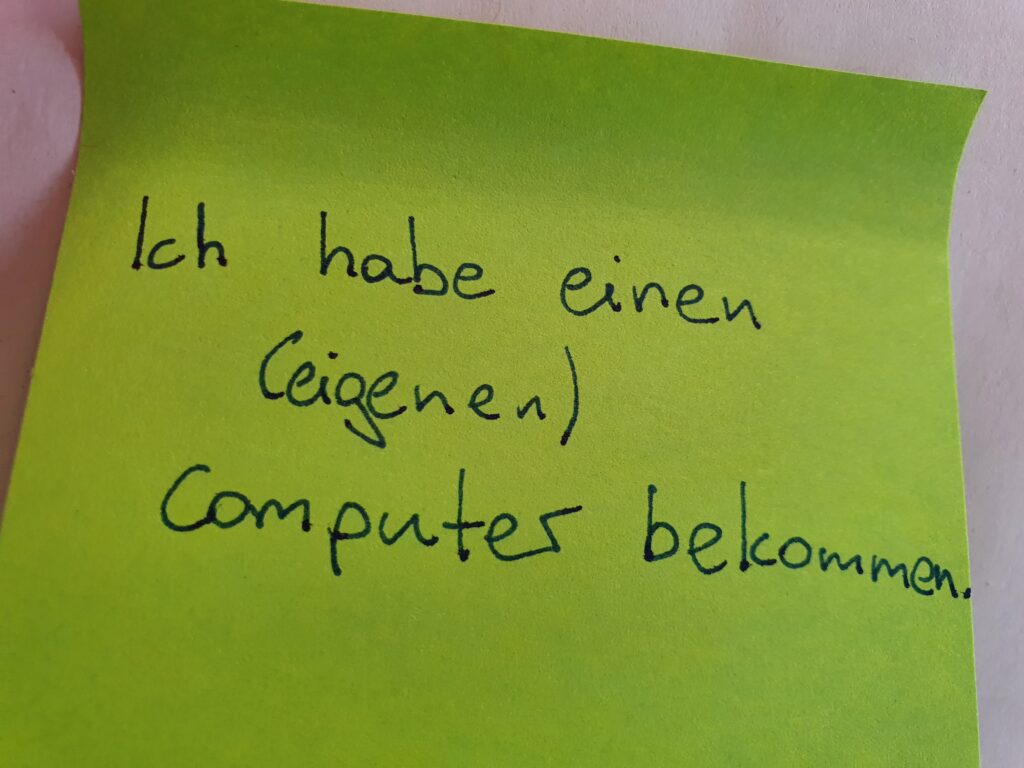 Ich habe einen
(eigenen)
Computer bekommen.